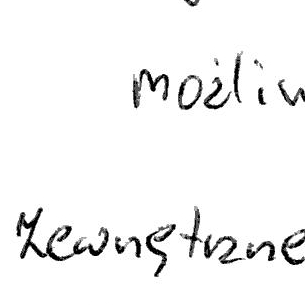 możliw
zewnętrzne